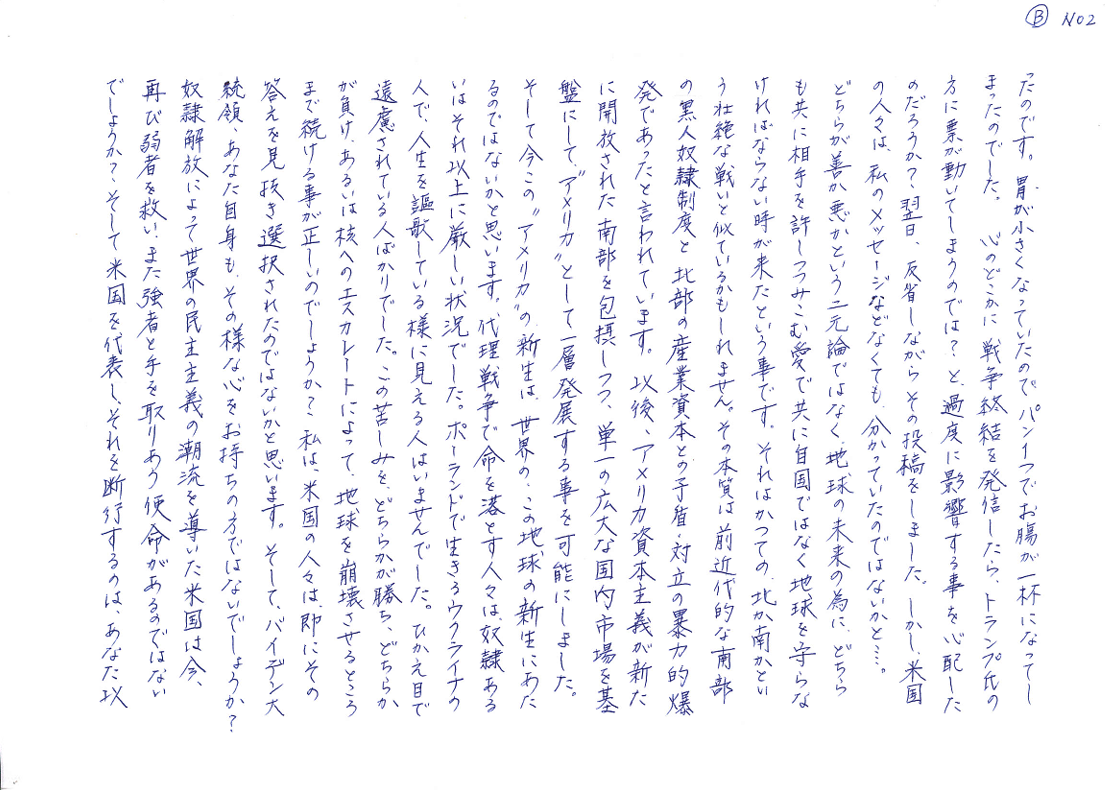 Ⓑ NO2
ったのです。胃が小さくなっていたので、パン1つでお腸が一杯になってし
まったのでした。 心のどこかに戦争終結を発信したら、トランプ氏の
方に票が動いてしまうのでは？と、過度に影響する事を心配した
のだろうか？翌日、反省しながらその投稿をしました。しかし、米国
の人々は、私のメッセージなどなくても、分かっていたのではないかと…。
どちらが善か悪かという二元論ではなく、地球の未来の為に、どちら
も共に相手を許しつつみこむ愛で、共に自国ではなく地球を守らな
ければならない時が来たという事です。それはかつての、北か南かとい
う壮絶な戦いと似ているかもしれません。その本質は前近代的な南部
の黒人奴隷制度と、北部の産業資本との矛盾・対立の暴力的爆
発であったと言われています。以後、アメリカ資本主義が新た
に開放された南部を包摂しつつ、単一の広大な国内市場を基
盤にして、“アメリカ”として一層発展する事を可能にしました。
そして今この“アメリカ”の新生は、世界の、この地球の新生にあた
るのではないかと思います。代理戦争で命を落とす人々は、奴隷ある
いはそれ以上に厳しい状況でした。ポーランドで生きるウクライナの
人で、人生を謳歌している様に見える人はいませんでした。ひかえ目で
遠慮されている人ばかりでした。この苦しみを、どちらかが勝ち、どちらか
が負け、あるいは核へのエスカレートによって、地球を崩壊させるところ
まで続ける事が正しいのでしょうか？私は、米国の人々は、即にその
答えを見抜き選択されたのではないかと思います。そして、バイデン大
統領、あなた自身も、その様な心をお持ちの方ではないでしょうか？
奴隷解放によって世界の民主主義の潮流を導いた米国は今、
再び弱者を救い、また強者と手を取りあう使命があるのではない
でしょうか？そして米国を代表し、それを断行するのは、あなた以